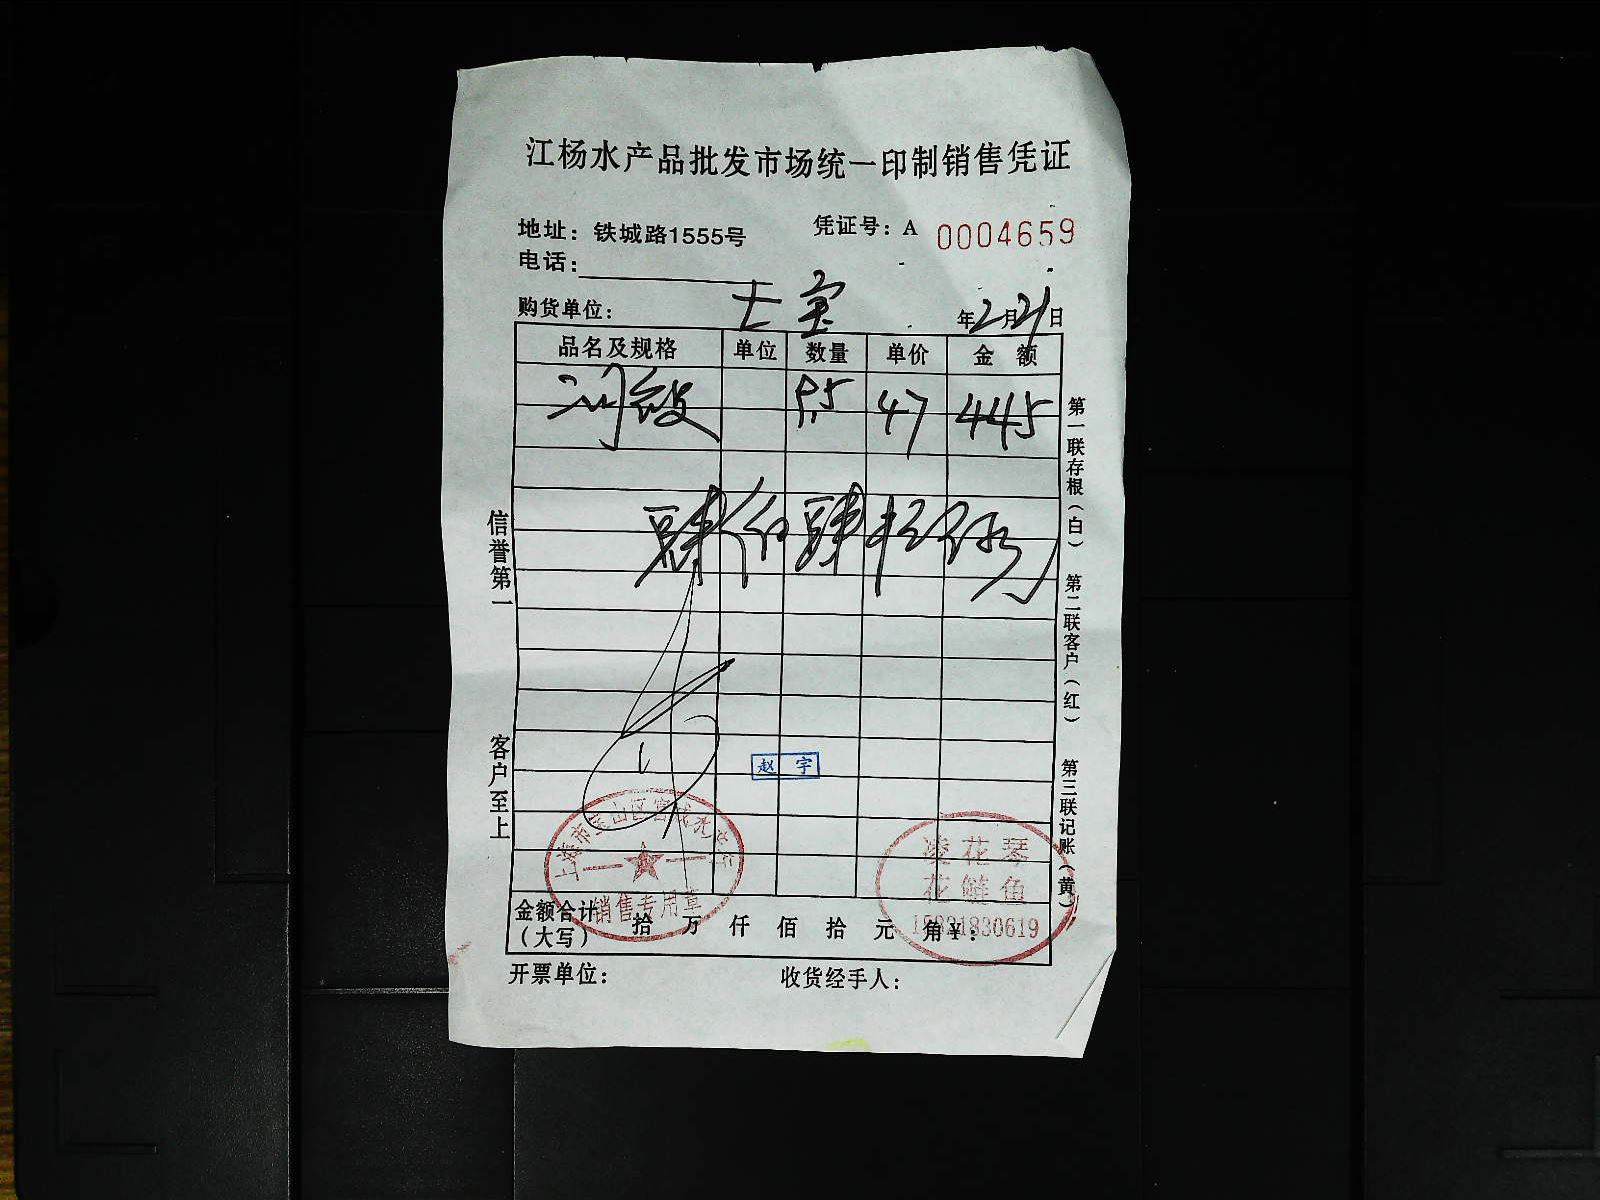 江杨水产品批发市场统一印制销售凭证
地址：铁城路1555号
凭证号：A 0004659
电话：
购货单位： 七宝 年2月21日
品名及规格 单位 数量 单价 金 额
47 445
肆佰肆拾伍元
信誉第一
客户至上
第一联存根（白）
第二联客户（红）
第三联记账（黄）
赵 宇
上海市宝山区
销售专用章
凌花琴
花鲢鱼
金额合计
（大写）
拾 万 仟 佰 拾 元 角¥：
开票单位：
收货经手人：